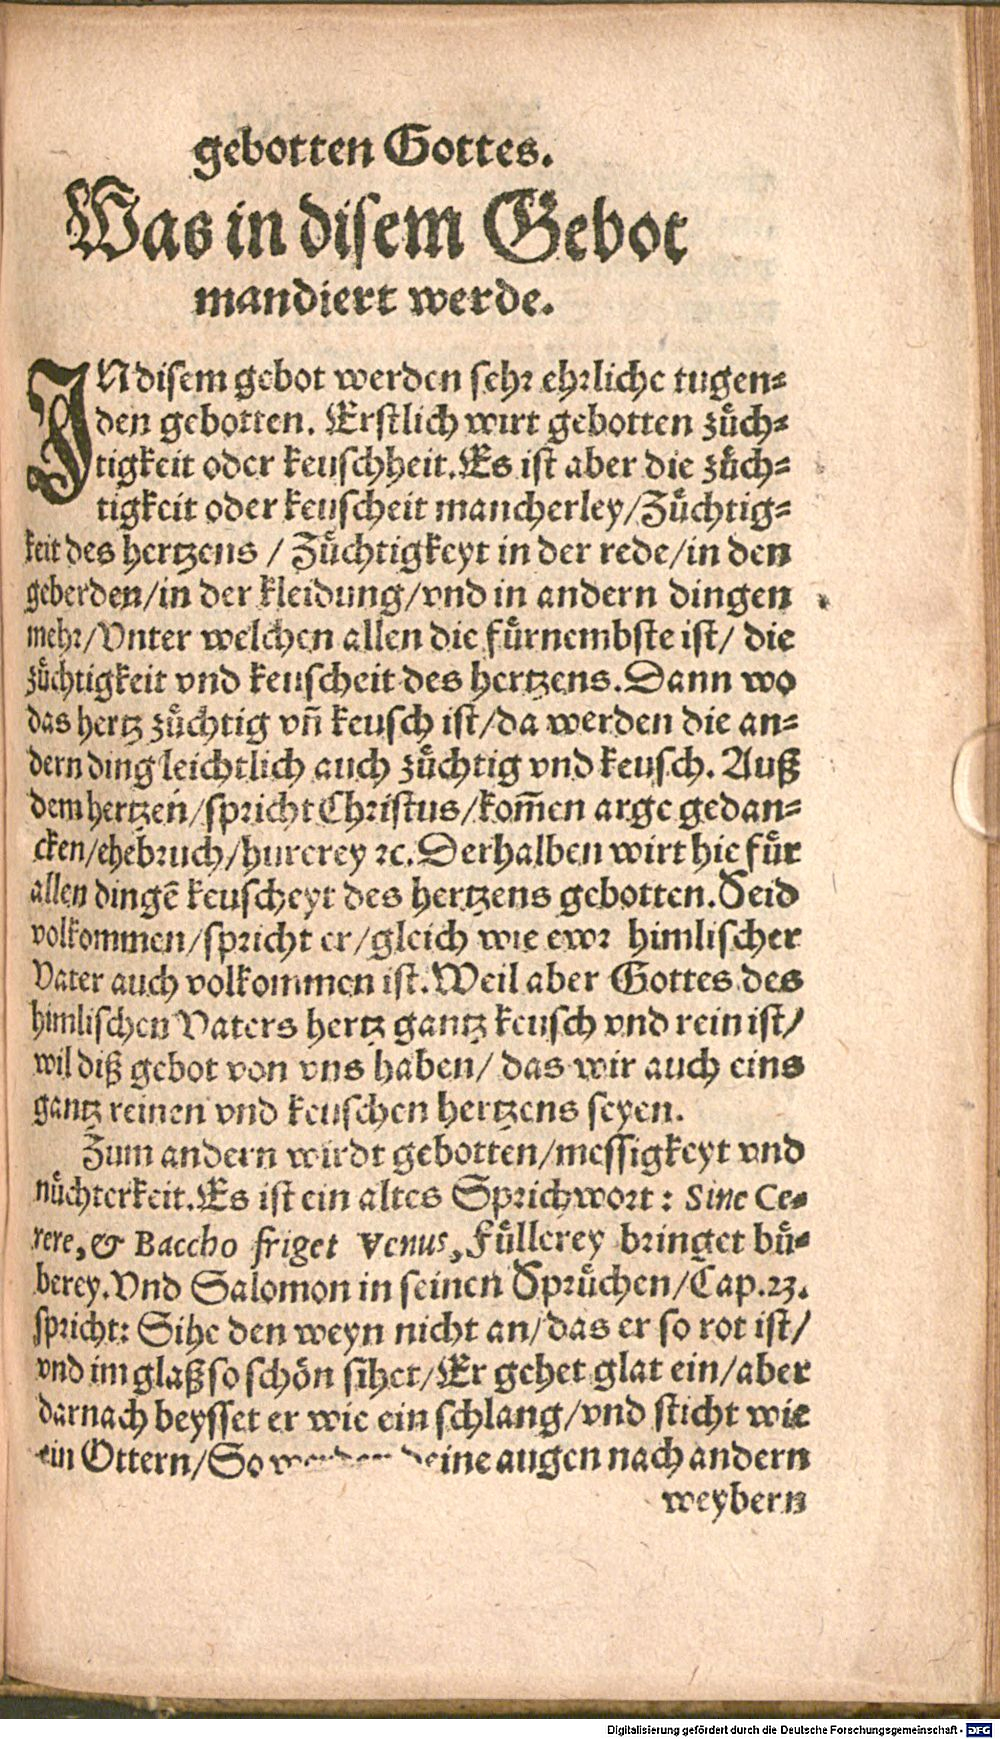 gebotten Gottes.
Was in disem Gebot
mandiert werde.
IN disem gebot werden sehr ehrliche tugen⸗
den gebotten. Erstlich wirt gebotten zuͤch⸗
tigkeit oder keuschheit. Es ist aber die zuͤch⸗
tigkeit oder keuscheit mancherley/Zuͤchtig⸗
keit des hertzens / Zuͤchtigkeyt in der rede/in den
geberden/in der kleidung/vnd in andern dingen
mehr/Vnter welchen allen die fuͤrnembste ist/ die
zuͤchtigkeit vnd keuscheit des hertzens. Dann wo
das hertz zuͤchtig vñ keusch ist/da werden die an⸗
dern ding leichtlich auch zuͤchtig vnd keusch. Auß
dem hertzen/spricht Christus/kom̃en arge gedan⸗
cken/ehebruch/hurerey ꝛc. Derhalben wirt hie fuͤr
allen dingẽ keuscheyt des hertzens gebotten. Seid
volkommen/spricht er/gleich wie ewr himlischer
Vater auch volkommen ist. Weil aber Gottes des
himlischen Vaters hertz gantz keusch vnd rein ist/
wil diß gebot von vns haben/ das wir auch eins
gantz reinen vnd keuschen hertzens seyen.
Zum andern wirdt gebotten/messigkeyt vnd
nuͤchterkeit. Es ist ein altes Sprichwort: Sine Ce⸗
rere, & Baccho friget Venus, Fuͤllerey bringet buͤ⸗
berey. Vnd Salomon in seinen Spruͤchen/Cap.23.
spricht: Sihe den weyn nicht an/das er so rot ist/
vnd im glaß so schoͤn sihet/Er gehet glat ein/aber
darnach beysset er wie ein schlang/vnd sticht wie
ein Ottern/So werden deine augen nach andern
weybern
Digitalisierung gefördert durch die Deutsche Forschungsgemeinschaft - DFG